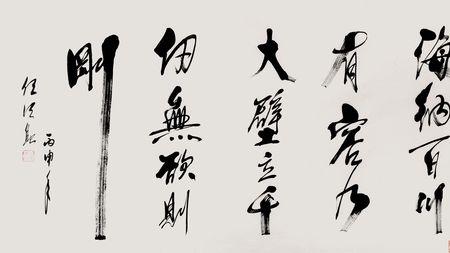 海納百川
有容乃
大壁立千
仞無欲則
剛
丙申年